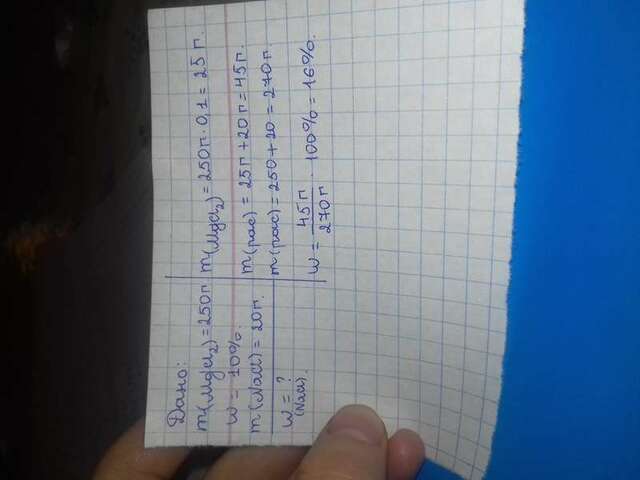 Дано:
m(MgCl2) = 250г
w = 10%.
m(NaCl) = 20г.
w = ?
(NaCl).
m(MgCl2) = 250г · 0,1 = 25 г.
m(рас) = 25г + 20г = 45г.
m(рас) = 250 + 20 = 270г.
w = 45г / 270г · 100% = 16%.